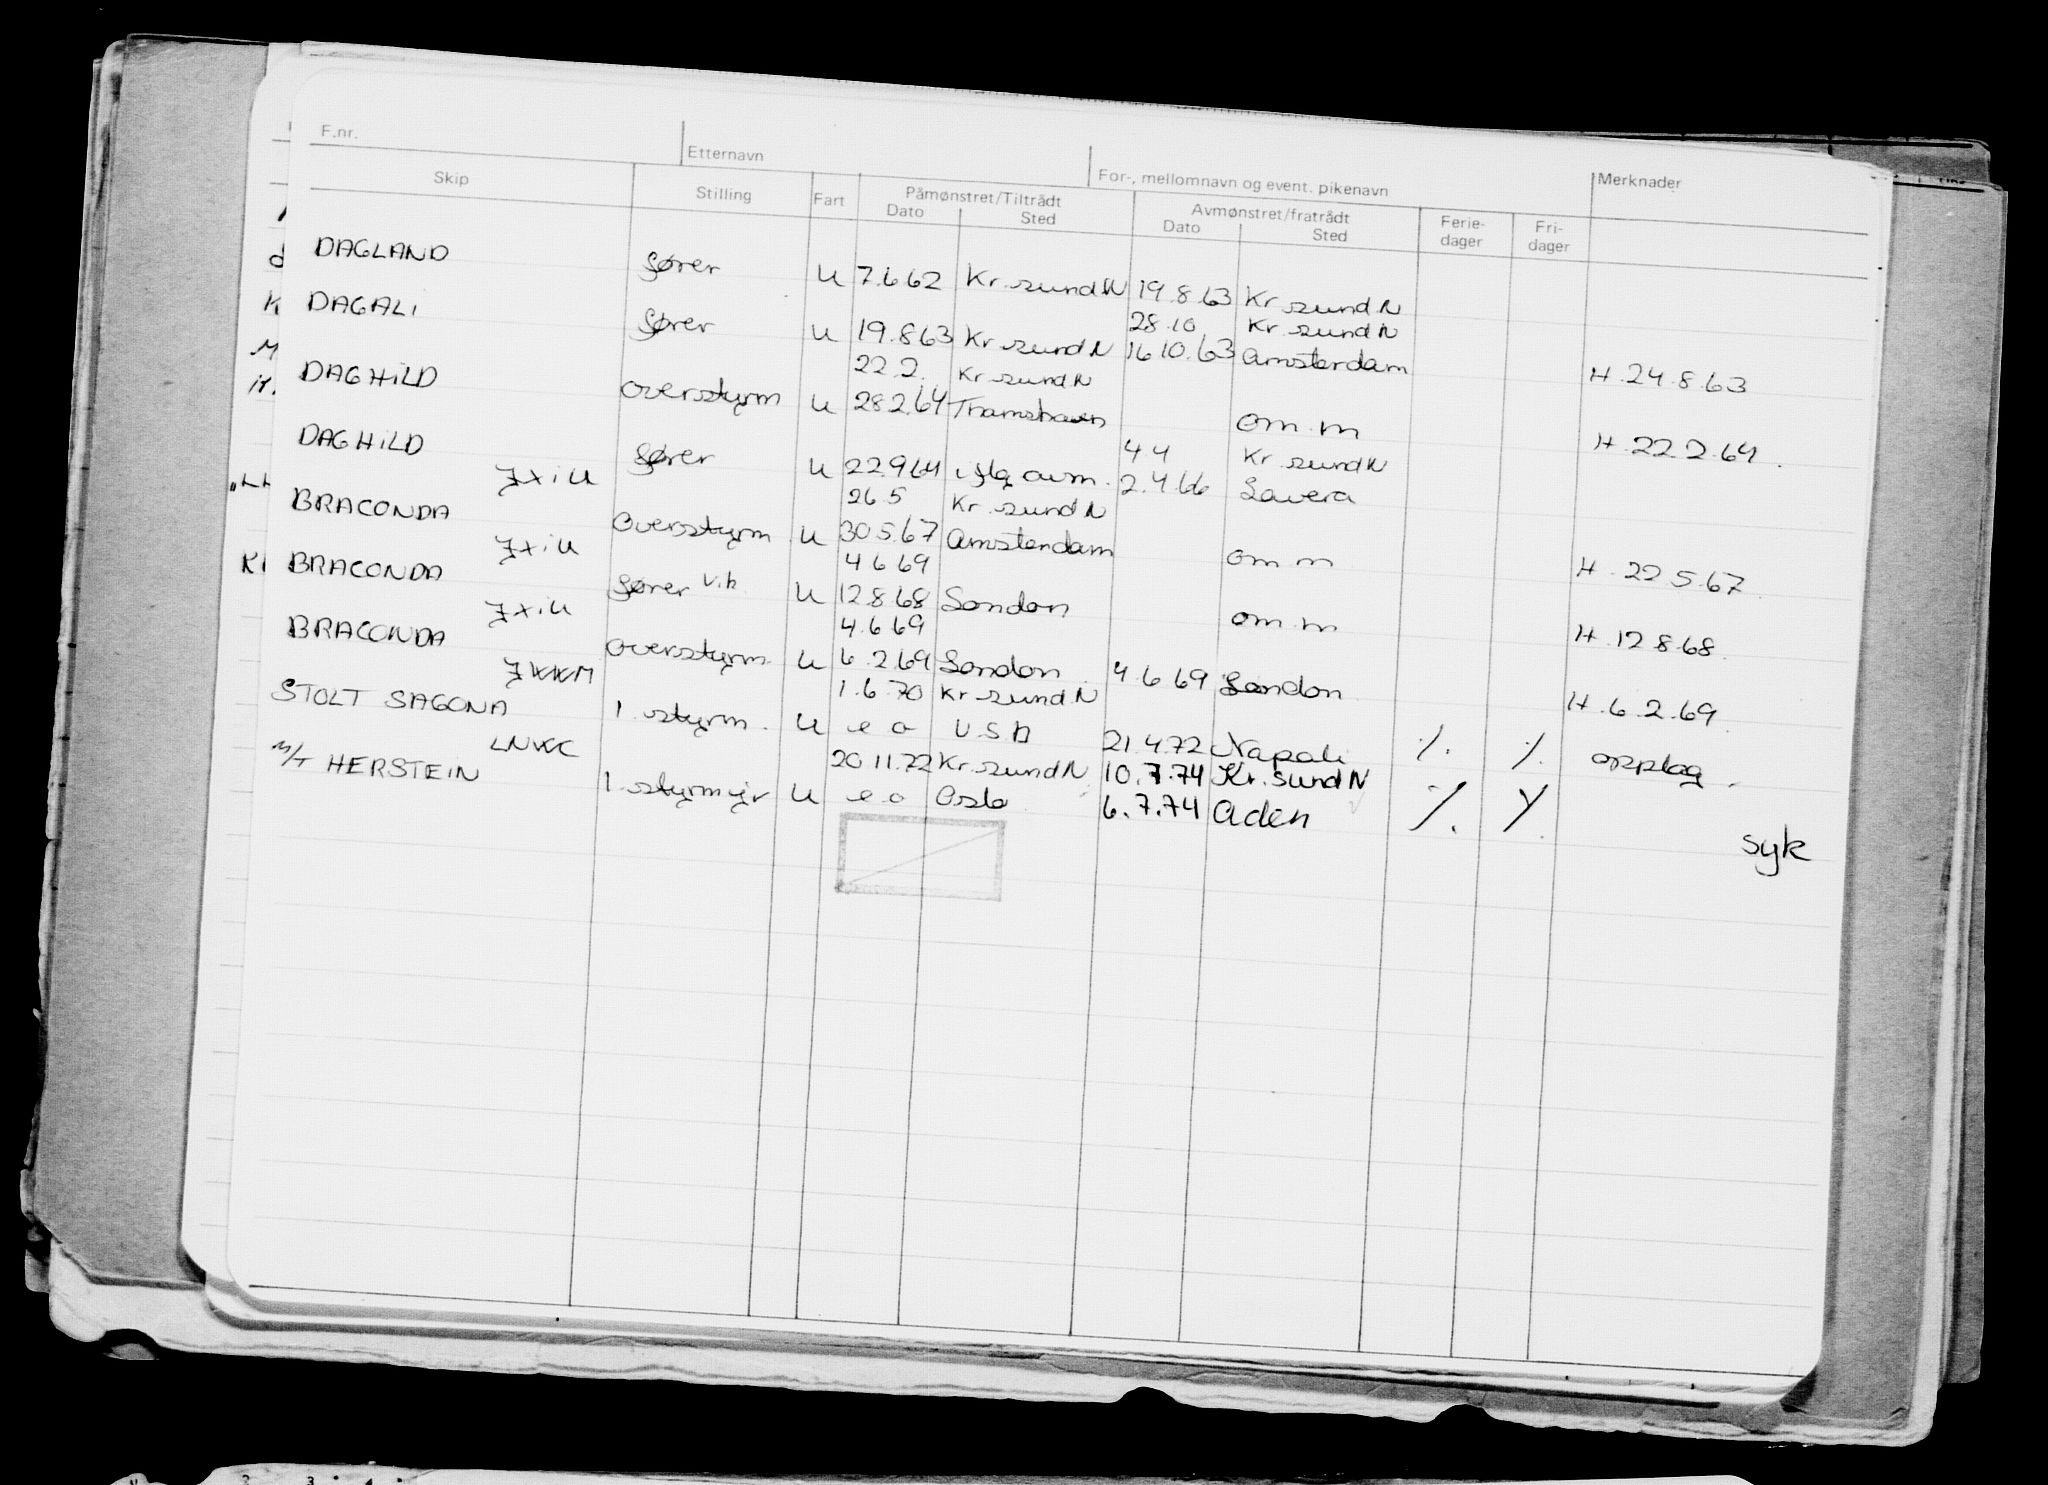 F.nr. Etternavn For-, mellomnavn og event. pikenavn Merknader
Skip Stilling Fart Påmønstret/Tiltrådt Avmønstret/fratrådt Ferie- Fri-
Dato Sted Dato Sted dager dager
DAGLAND fører U 7.6.62 Kr.sund N 19.8.63 Kr.sund N
28.10 Kr.sund N
DAGALI fører U 19.8.63 Kr.sund N 16.10.63 Amsterdam H.24.8.63
22.2. Kr.sund N
DAGHILD overstyrm U 28.2.64 Thamshavn om.m H.22.2.64.
4.4 Kr.sund N
DAGHILD fører U 22.9.64 iflg avm. 2.4.66 Lavera
JXIU 26.5 Kr.sund N
BRACONDA overstyrm U 30.5.67 Amsterdam om m H.22.5.67.
JXIU 4.6.69
BRACONDA fører v.k. U 12.8.68 London om.m H.12.8.68.
JXIU 4.6.69
BRACONDA overstyrm. U 6.2.69 London 4.6.69 London H.6.2.69.
JWKM 1.6.70 Kr.sund N
STOLT SAGONA 1.styrm. U e o U.S.A 21.4.72 Napoli ./. ./. opplag
LNVC 20.11.72 Kr.sund N 10.7.74 Kr.sund N
M/T HERSTEIN 1 styrm yr U e o Oslo 6.7.74 Aden ./. ./. syk